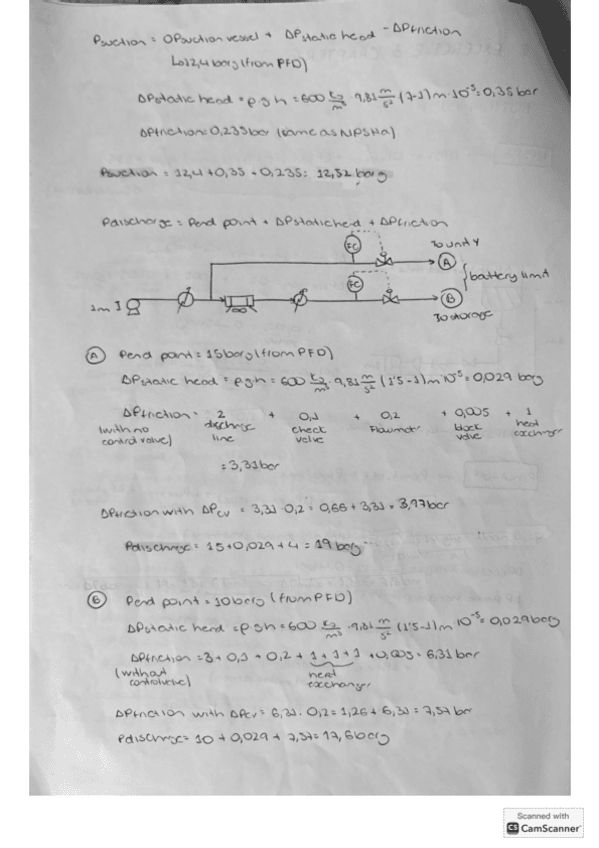 Psuction = OPsuction vessel + ΔPstatic head - ΔPfriction
↳ 12,4 barg (from PFD)
ΔPstatic head = ρ.g.h = 600 kg/m³ · 9,81 m/s² (7-1)m · 10⁻⁵ = 0,35 bar
ΔPfriction = 0,235 bar (same as NPSHa)
Psuction = 12,4 + 0,35 - 0,235 = 12,52 barg
Pdischarge = Pend point + ΔPstatic head + ΔPfriction
FC
To unit Y
A
FC
battery limit
1m
B
To storage
A Pend point = 15 barg (from PFD)
ΔPstatic head = ρ.g.h = 600 kg/m³ · 9,81 m/s² (1'5-1)m 10⁻⁵ = 0,029 barg
ΔPfriction = 2 + 0,1 + 0,2 + 0,005 + 1
(with no control valve) discharge line check valve Flowmeter block valve heat exchanger
= 3,31 bar
ΔPfriction with ΔPcv = 3,31 · 0,2 = 0,66 + 3,31 = 3,97 bar
Pdischarge = 15 + 0,029 + 4 = 19 barg
B Pend point = 10 barg (from PFD)
ΔPstatic head = ρ g h = 600 kg/m³ · 9,81 m/s² (1'5-1)m 10⁻⁵ = 0,029 barg
ΔPfriction = 3 + 0,1 + 0,2 + 1 + 1 + 1 + 0,005 = 6,31 bar
(without control valve) heat exchanger
ΔPfriction with ΔPcv = 6,31 · 0,2 = 1,26 + 6,31 = 7,57 bar
Pdischarge = 10 + 0,029 + 7,57 = 17,6 barg
Scanned with
CS CamScanner